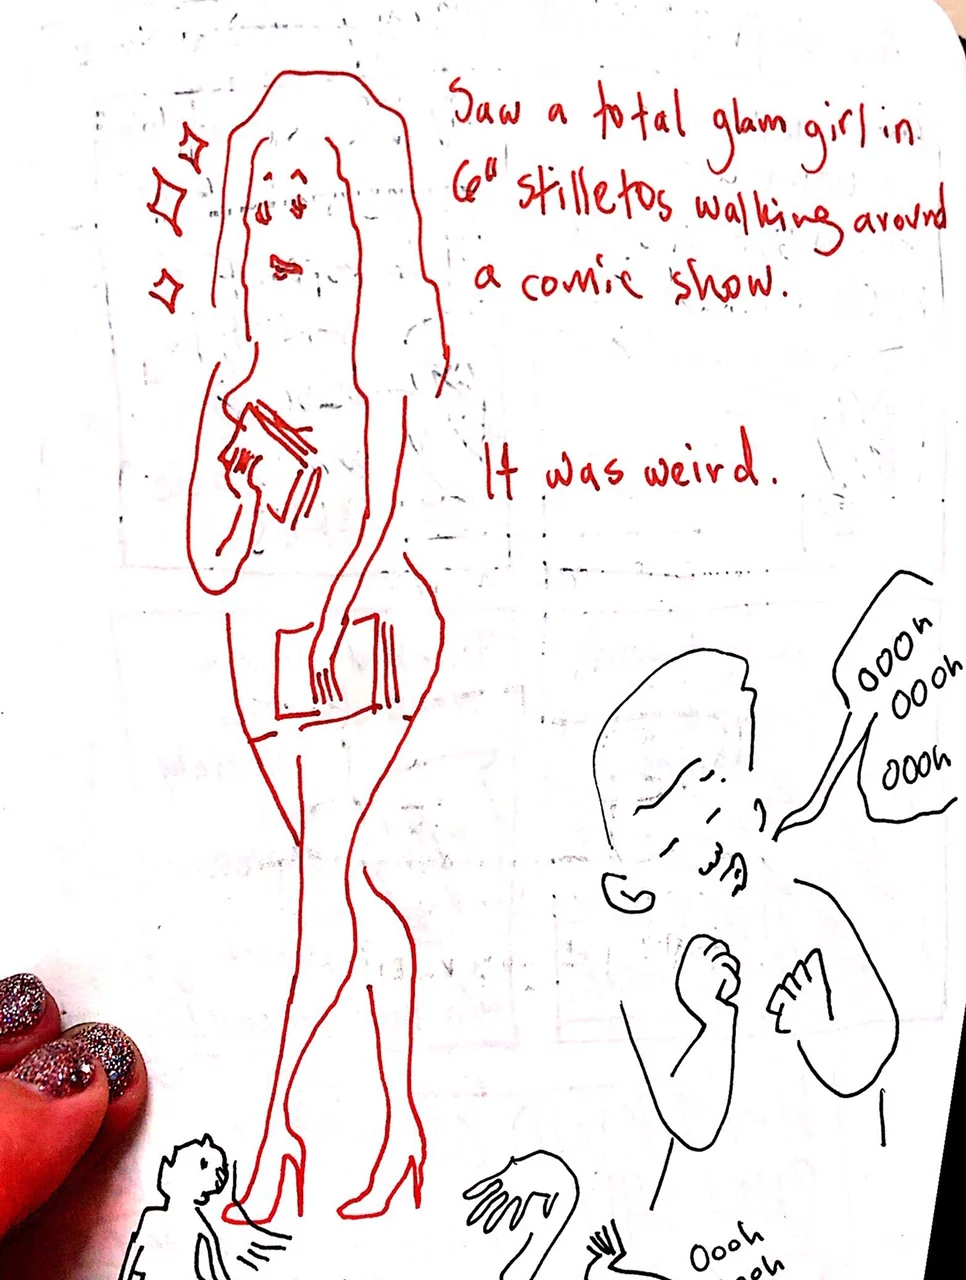 Saw a total glam girl in
6" stilletos walking around
a comic show.
It was weird.
oooh
oooh
oooh
Oooh